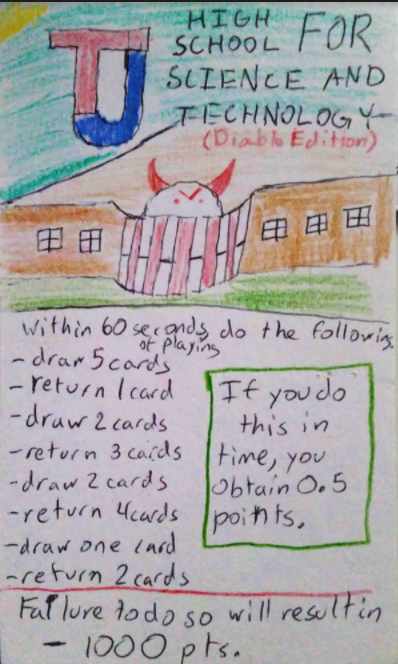 TJ HIGH
SCHOOL FOR
SCIENCE AND
TECHNOLOGY
(Diablo Edition)
Within 60 seconds of playing do the following
- draw 5 cards
- return 1 card
- draw 2 cards
- return 3 cards
- draw 2 cards
- return 4 cards
- draw one card
- return 2 cards
If you do
this in
time, you
obtain 0.5
points.
Failure to do so will result in
- 1000 pts.